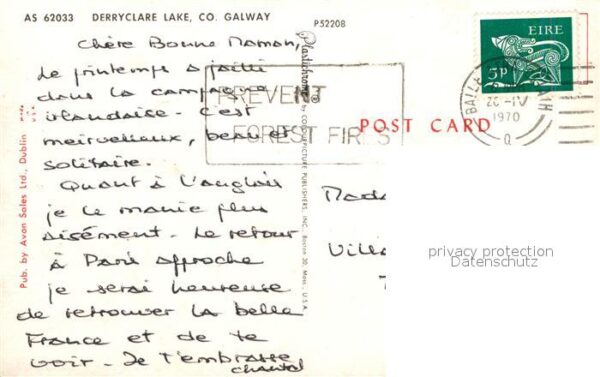 AS 62033 DERRYCLARE LAKE, CO. GALWAY
P52208
Chère Bonne Maman,
Le printemps a jailli
dans la campagne
irlandaise. C'est
merveilleux, beau et
solitaire.
Quant à l'anglais
je le manie plus
aisément. Le retour
à Paris approche
je serai heureuse
de retrouver la belle
France et de te
voir. Je t'embrasse
Chantal
Pub. by Avon Sales Ltd., Dublin
MADE U.S.A.
Plastichrome ® by COLOURPICTURE PUBLISHERS, INC., Boston 30, Mass., U.S.A.
PREVENT
FOREST FIRES
POST CARD
EIRE
5p
BAILE
20-IV
1970
Q
Mada
Villa
privacy protection
Datenschutz